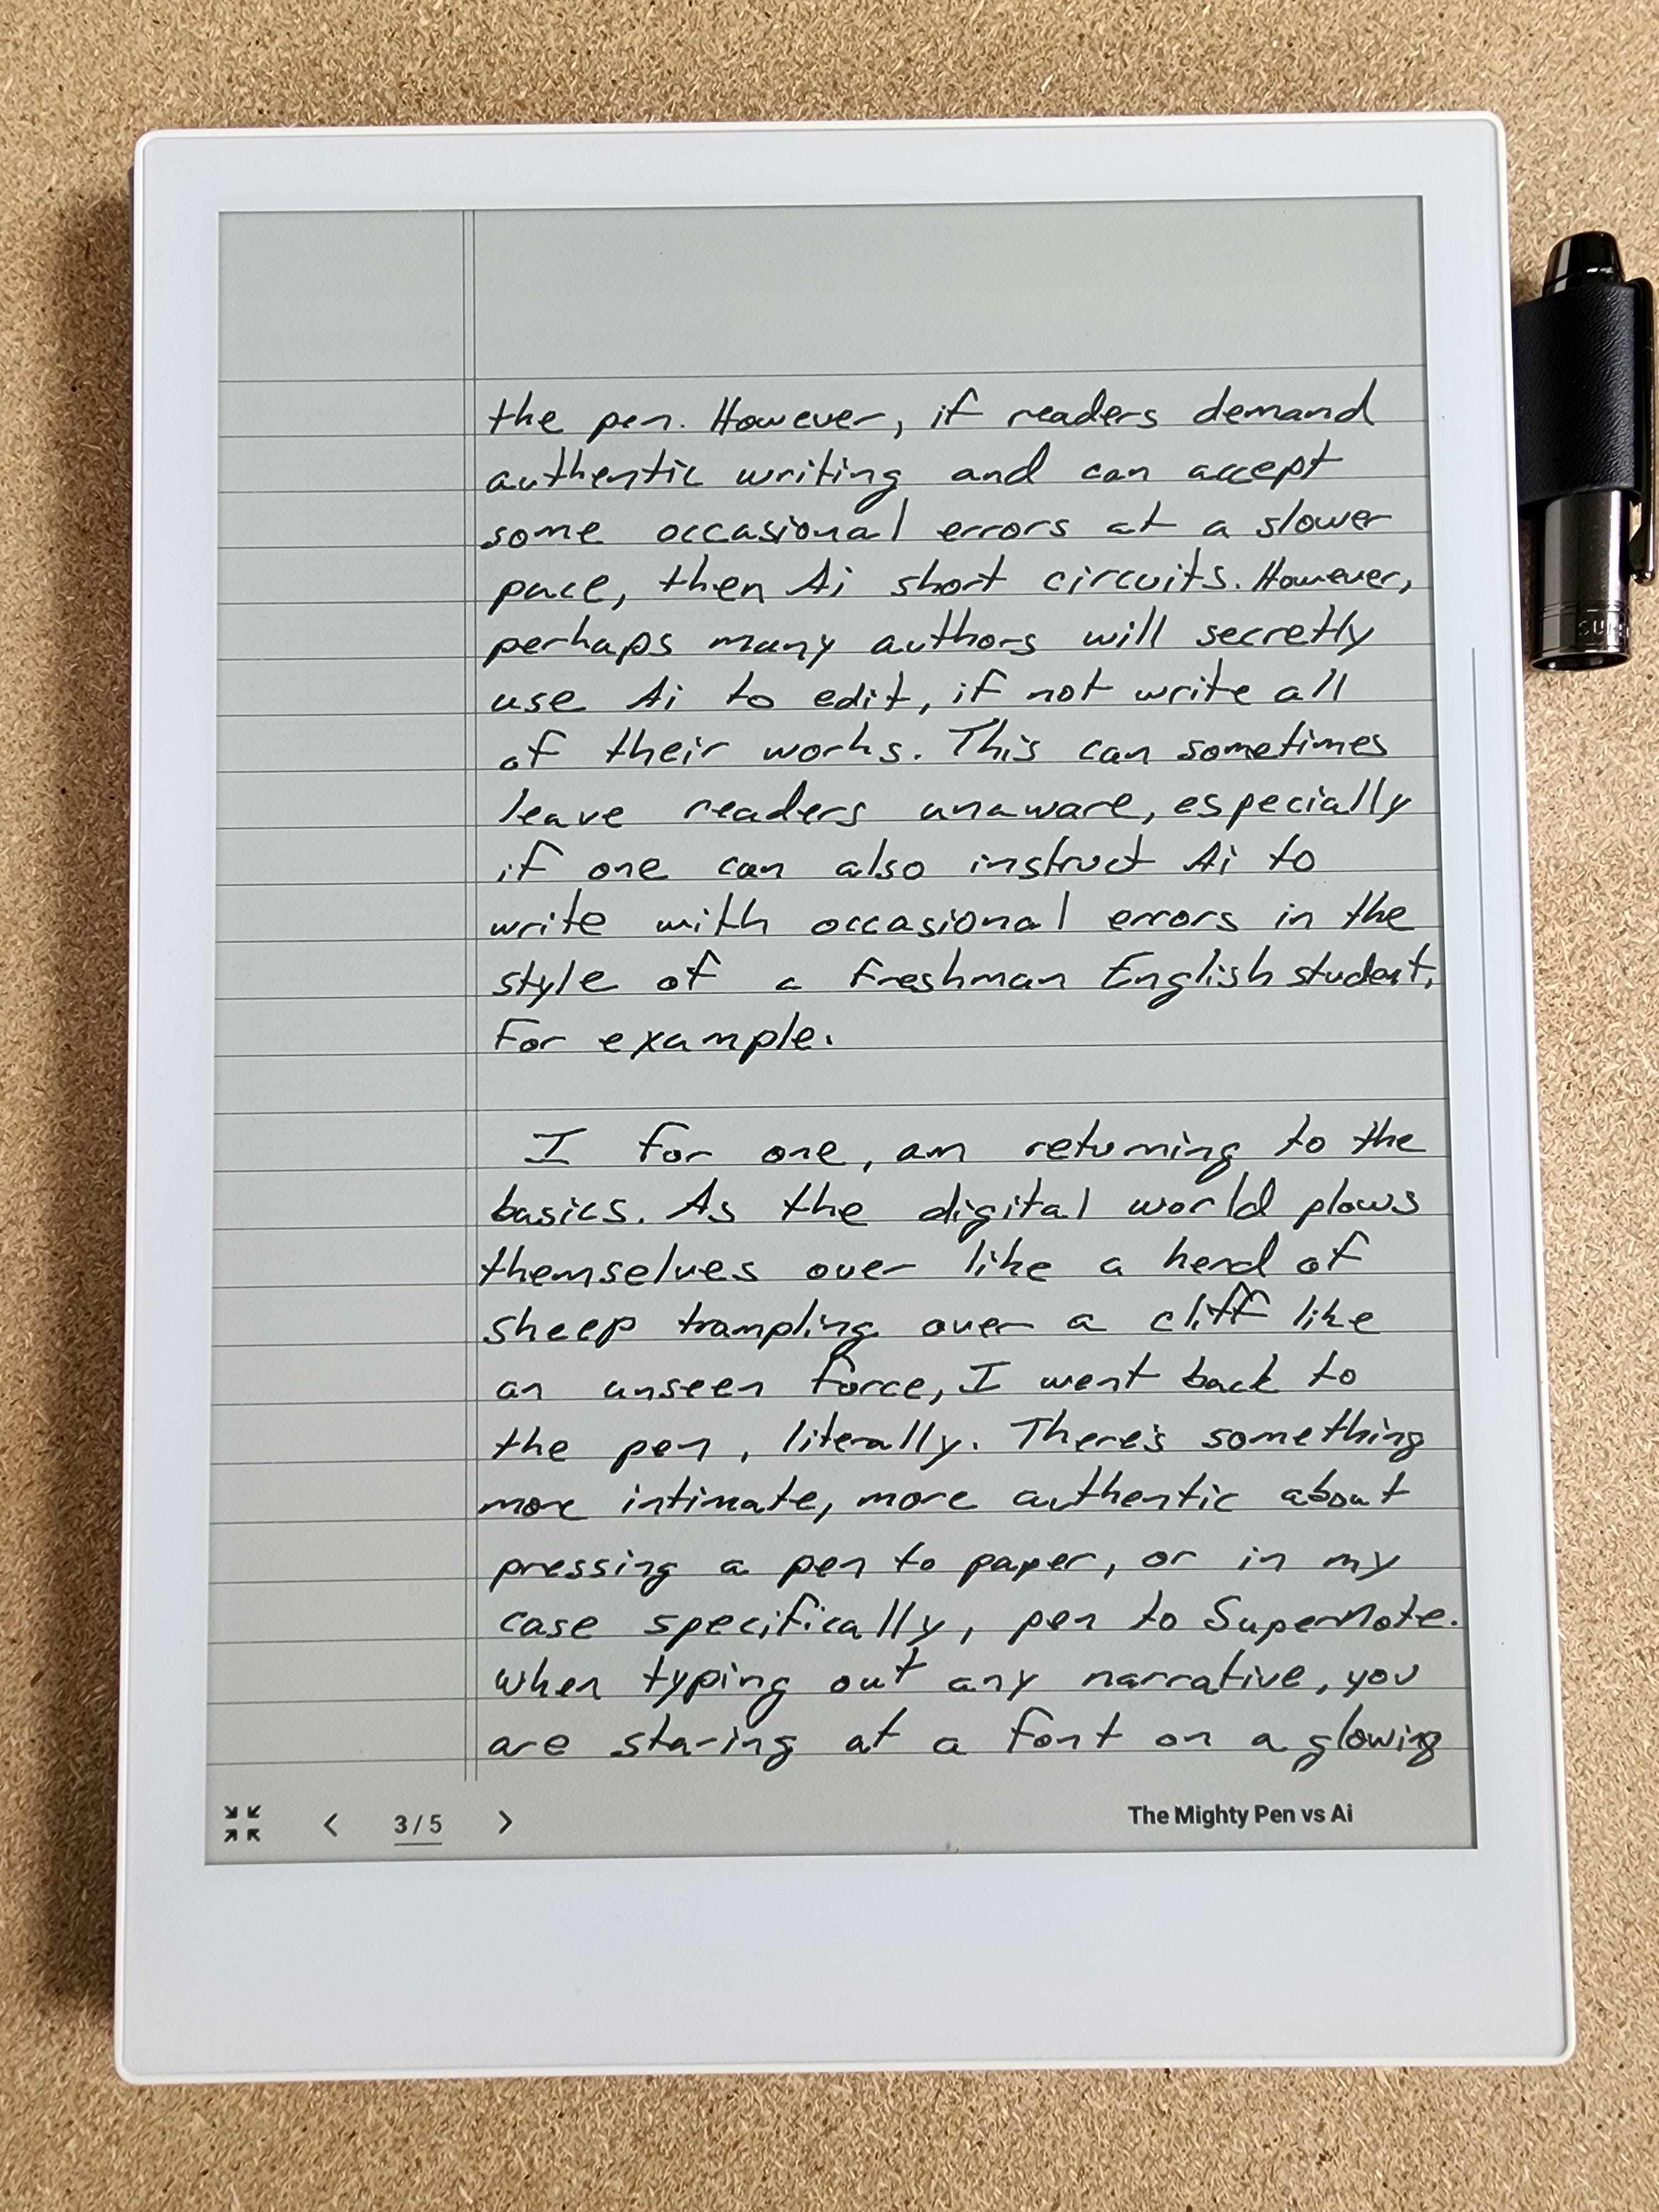 the pen. However, if readers demand
authentic writing and can accept
some occasional errors at a slower
pace, then Ai short circuits. However,
perhaps many authors will secretly
use Ai to edit, if not write all
of their works. This can sometimes
leave readers unaware, especially
if one can also instruct Ai to
write with occasional errors in the
style of a Freshman English student,
For example.
I for one, am returning to the
basics. As the digital world plows
themselves over like a herd of
sheep trampling over a cliff like
an unseen force, I went back to
the pen, literally. There's something
more intimate, more authentic about
pressing a pen to paper, or in my
case specifically, pen to SuperNote.
When typing out any narrative, you
are staring at a font on a glowing
3 / 5
The Mighty Pen vs Ai